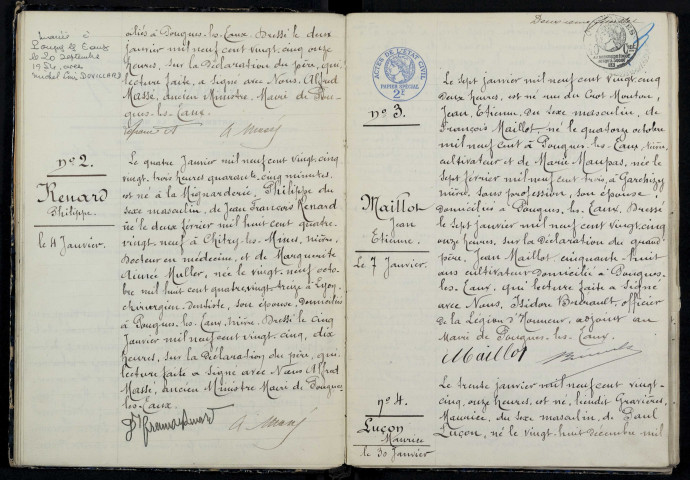 mariée à
Pougues les Eaux
le 20 septembre
1954 avec
ciliés à Pougues-les-Eaux. Dressé le deux
janvier mil neuf cent vingt-cinq onze
heures, sur la déclaration du père, qui,
lecture faite, a signé avec Nous, Alfred
Massé, ancien Ministre, Maire de Pou-
gues-les-Eaux.
A. Massé
n° 2.
Renard
Philippe
le 4 Janvier.
Le quatre Janvier mil neuf cent vingt-cinq
vingt-trois heures quarante-cinq minutes,
est né à la Mignarderie, Philippe du
sexe masculin, de Jean François Renard
né le deux février mil huit cent quatre-
vingt-neuf à Chitry-les-Mines, nièvre,
Docteur en médecine, et de Marguerite
Aimée Muller, née le vingt-neuf octo-
bre mil huit cent quatre-vingt-treize à Lyon,
chirurgien-dentiste, son épouse, domiciliés
à Pougues-les-Eaux, nièvre. Dressé le cinq
Janvier mil neuf cent vingt-cinq, dix
heures, sur la déclaration du père, qui,
lecture faite a signé avec Nous Alfred
Massé, ancien Ministre Maire de Pougues-
les-Eaux.
A. Massé
ACTES DE L'ÉTAT CIVIL
PAPIER SPÉCIAL
2F
n° 3.
Maillot
Jean
Etienne.
Le 7 Janvier.
Le sept janvier mil neuf cent vingt-cinq
deux heures, est né rue du Crot-Mouton,
Jean, Etienne, du sexe masculin, de
François Maillot, né le quatorze octobre
mil neuf cent à Pougues-les-Eaux, nièvre,
cultivateur et de Marie Maupas, née le
sept février mil neuf cent trois, à Garchizy
nièvre, sans profession, son épouse,
domiciliés à Pougues-les-Eaux. Dressé
le sept janvier mil neuf cent vingt-cinq
onze heures, sur la déclaration du grand
père, Jean Maillot, cinquante-huit
ans cultivateur domicilié à Pougues-
les-Eaux, qui lecture faite a signé
avec Nous, Isidore officier
de la Légion d'Honneur, adjoint au
Maire de Pougues-les-Eaux.
Maillot
n° 4.
Luçon
Maurice
le 30 Janvier
Le trente janvier mil neuf cent vingt-
cinq, onze heures, est né, lieudit Gravières,
Maurice, du sexe masculin, de Paul
Luçon, né le vingt-huit décembre mil